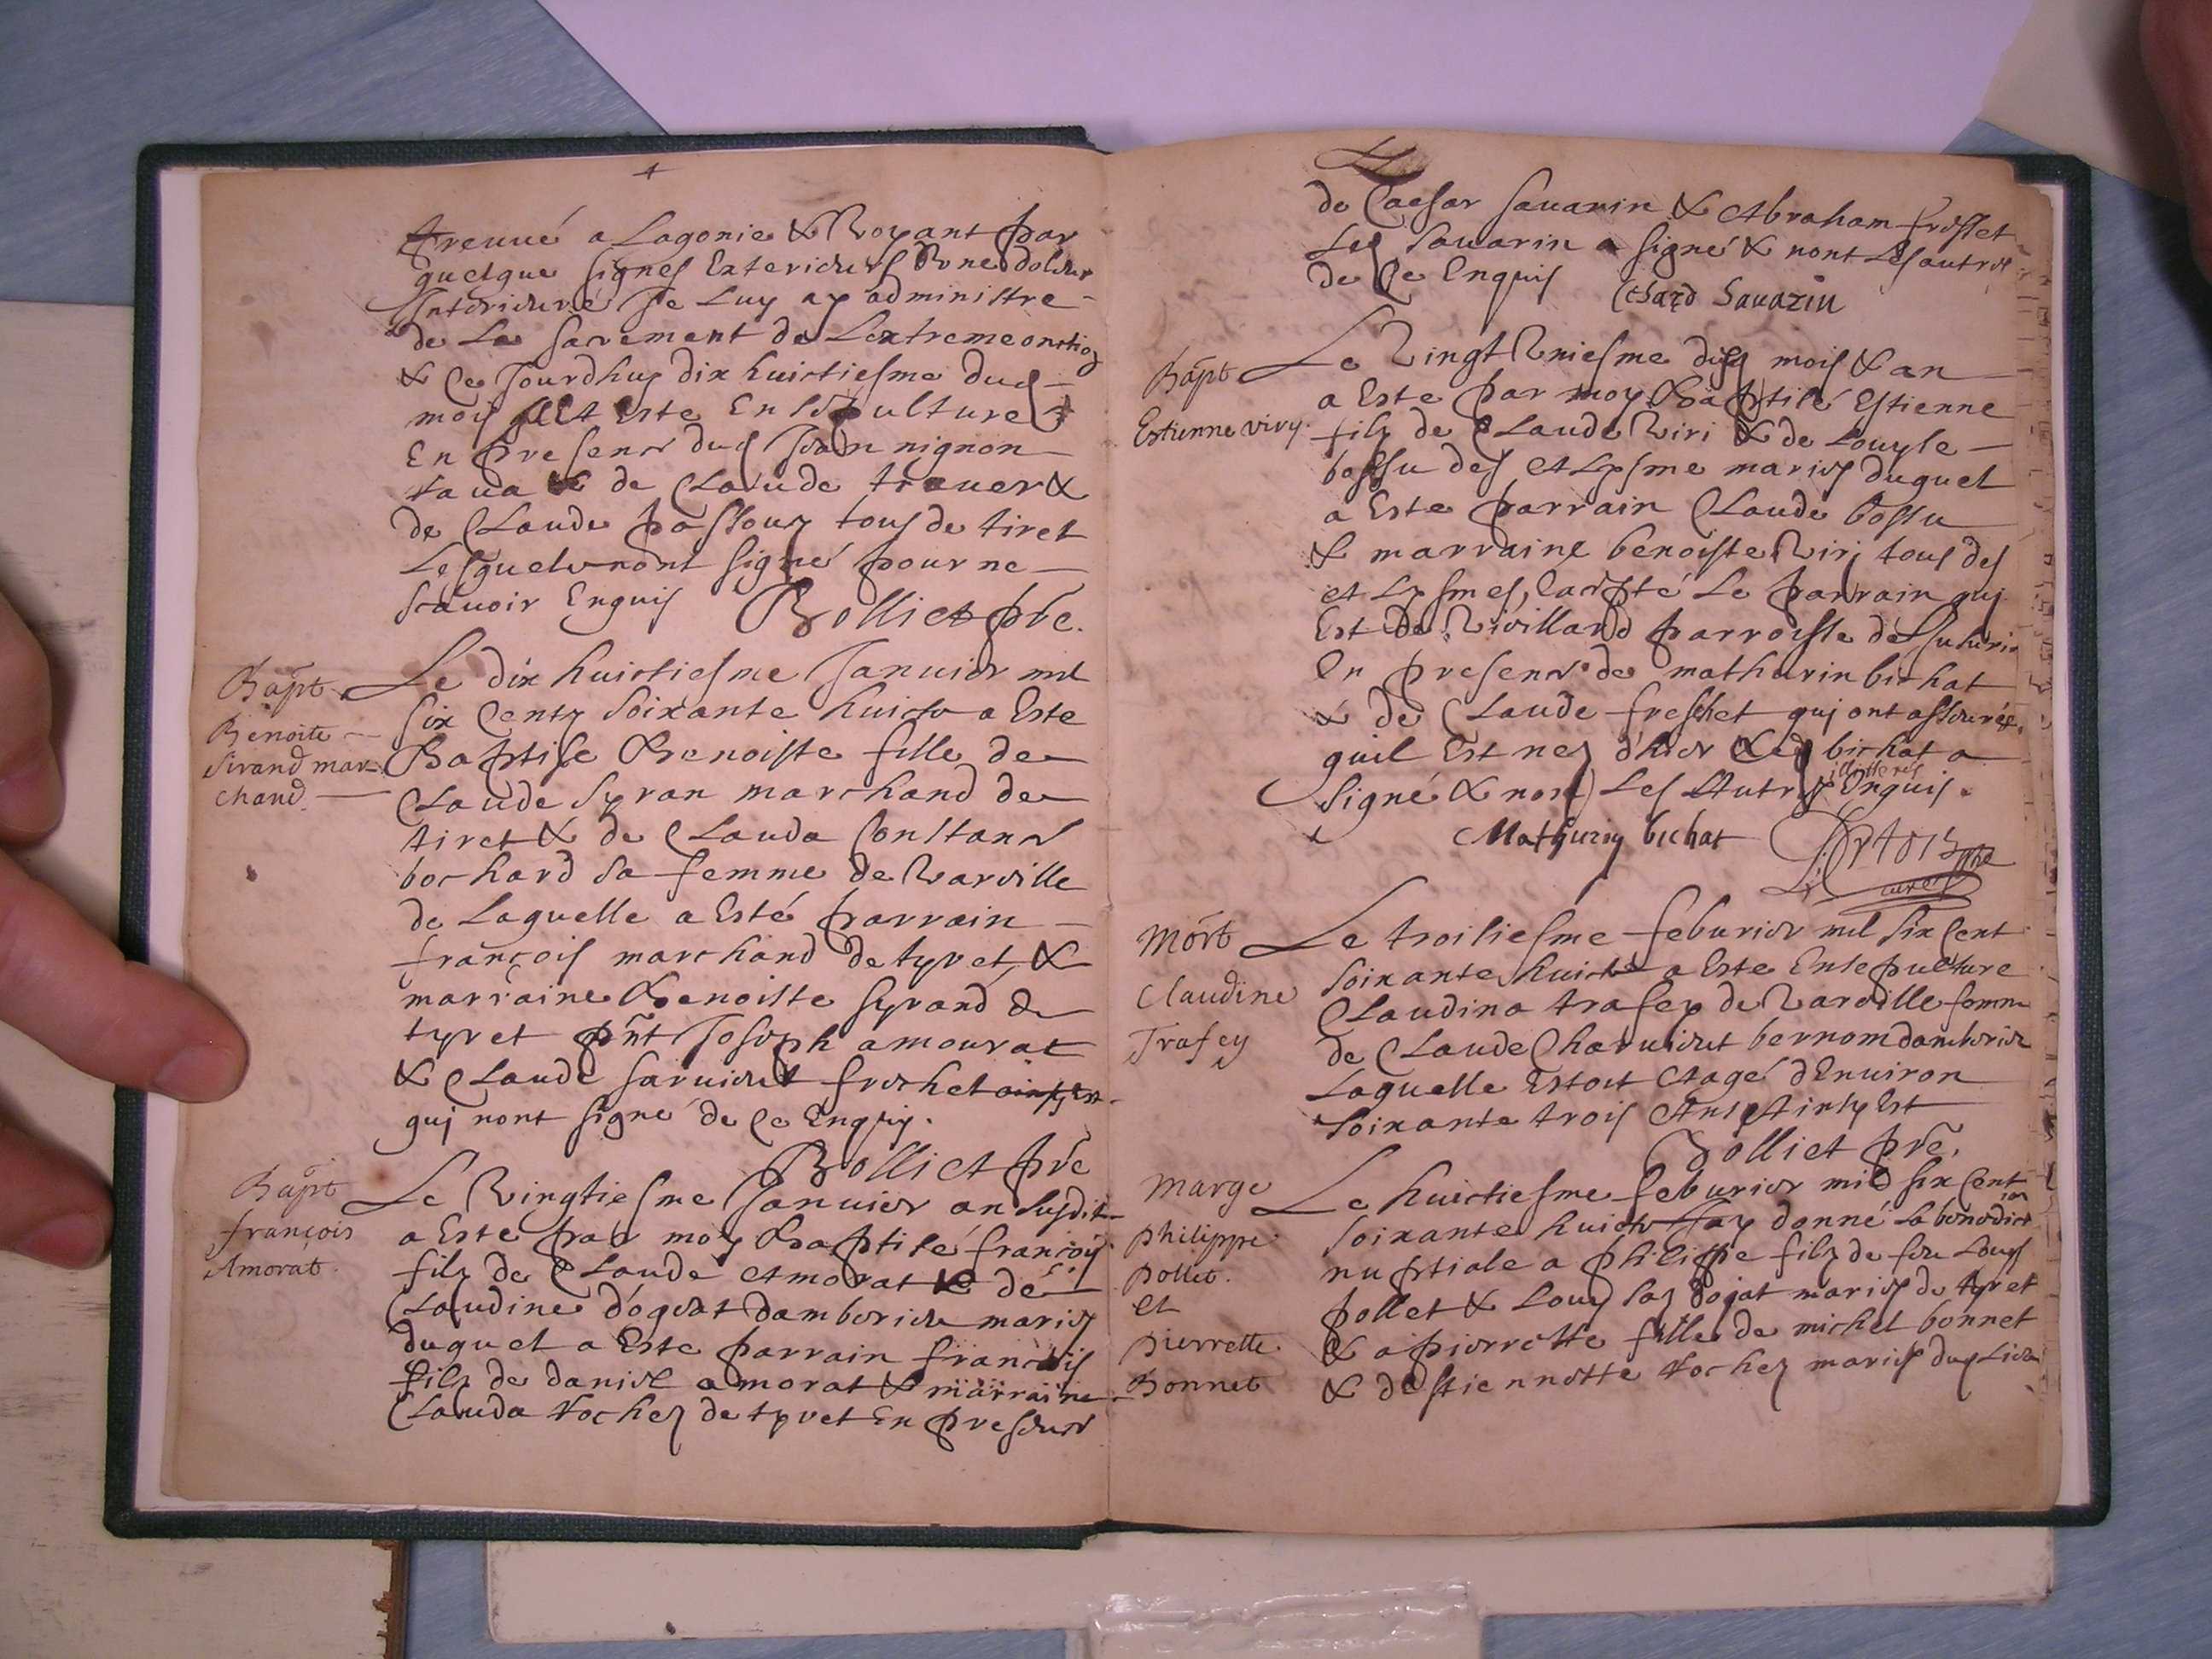 treuué a Lagonie & Voyant par
quelque signes Exterieurs Vne doleur
Interieure Je Luy ay administre
de Le sacrement de Lextremeonction
& Ce Jourdhuy dix huictiesme dud
mois Et Este En sepulture
En presence dud Jean nignon
de Claude trauer &
de Claude passouz tous de tiret
Lesquels nont signé pour ne
scauoir Enquis Bolliet pre.
Bapt
Benoite
Sirand mar-
chand
Le dix huictiesme Januier mil
six Centz soixante huict a Este
Baptise Benoiste fille de
Claude Syran marchand de
tiret & de Clauda Constance
bochard sa femme de Varville
de Laquelle a Esté parrain
françois marchand de tyret &
marraine Benoiste Syrand de
tyret pnt Joseph amourat
& Claude frochet
qui nont signé de Ce Enquis.
Bolliet pre
Bapt
françois
Amorat.
Le Vingtiesme Januier an susdit
a Este par moy Baptisé françois
filz de Claude Amorat & de
Claudine dogeat damberieu mariez
duquel a Este parrain françois
filz de daniel amorat & marraine
Clauda tochez de tyret En presence
de Caesar sauarin & Abraham
Led sauarin a signé & nont Les autres
de Ce Enquis Sauarin
Bapt
Estienne viry.
Le Vingt Vniesme dud mois & an
a Este par moy Baptisé Estienne
filz de Claude Viri & de Louyse
bossu des Alysme mariez duquel
a Este parrain Claude bossu
& marraine benoiste Viri tous des
Alysmes, Excepté Le parrain qui
Est de Vivilland parroisse de
En presence de mathurin bichat
& de Claude freschet qui ont asseurés
quil Est nez d'hier & led bichat a
signé & non Les Autres Enquis.
Mathurin bichat
Mort
Claudine
Trafey
Le troisiesme feburier mil six Cent
soixante huict a Este Ensepulture
Claudina trafey de Varville femme
de Claude Charuieut bernom damberieu
Laquelle Estoit Aagé dEnuiron
soixante trois Ans Ainsy Est
Bolliet pre.
Marge
philippe
pollet.
et
pierrette
Bonnet
Le huictiesme feburier mil six Cent
soixante huict Jay donné La benediction
nuptiale a philippe filz de feu Louys
pollet & dojat mariez de tyret
& a pierrette fille de michel bonnet
& destiennette tochez mariez dud Lieu